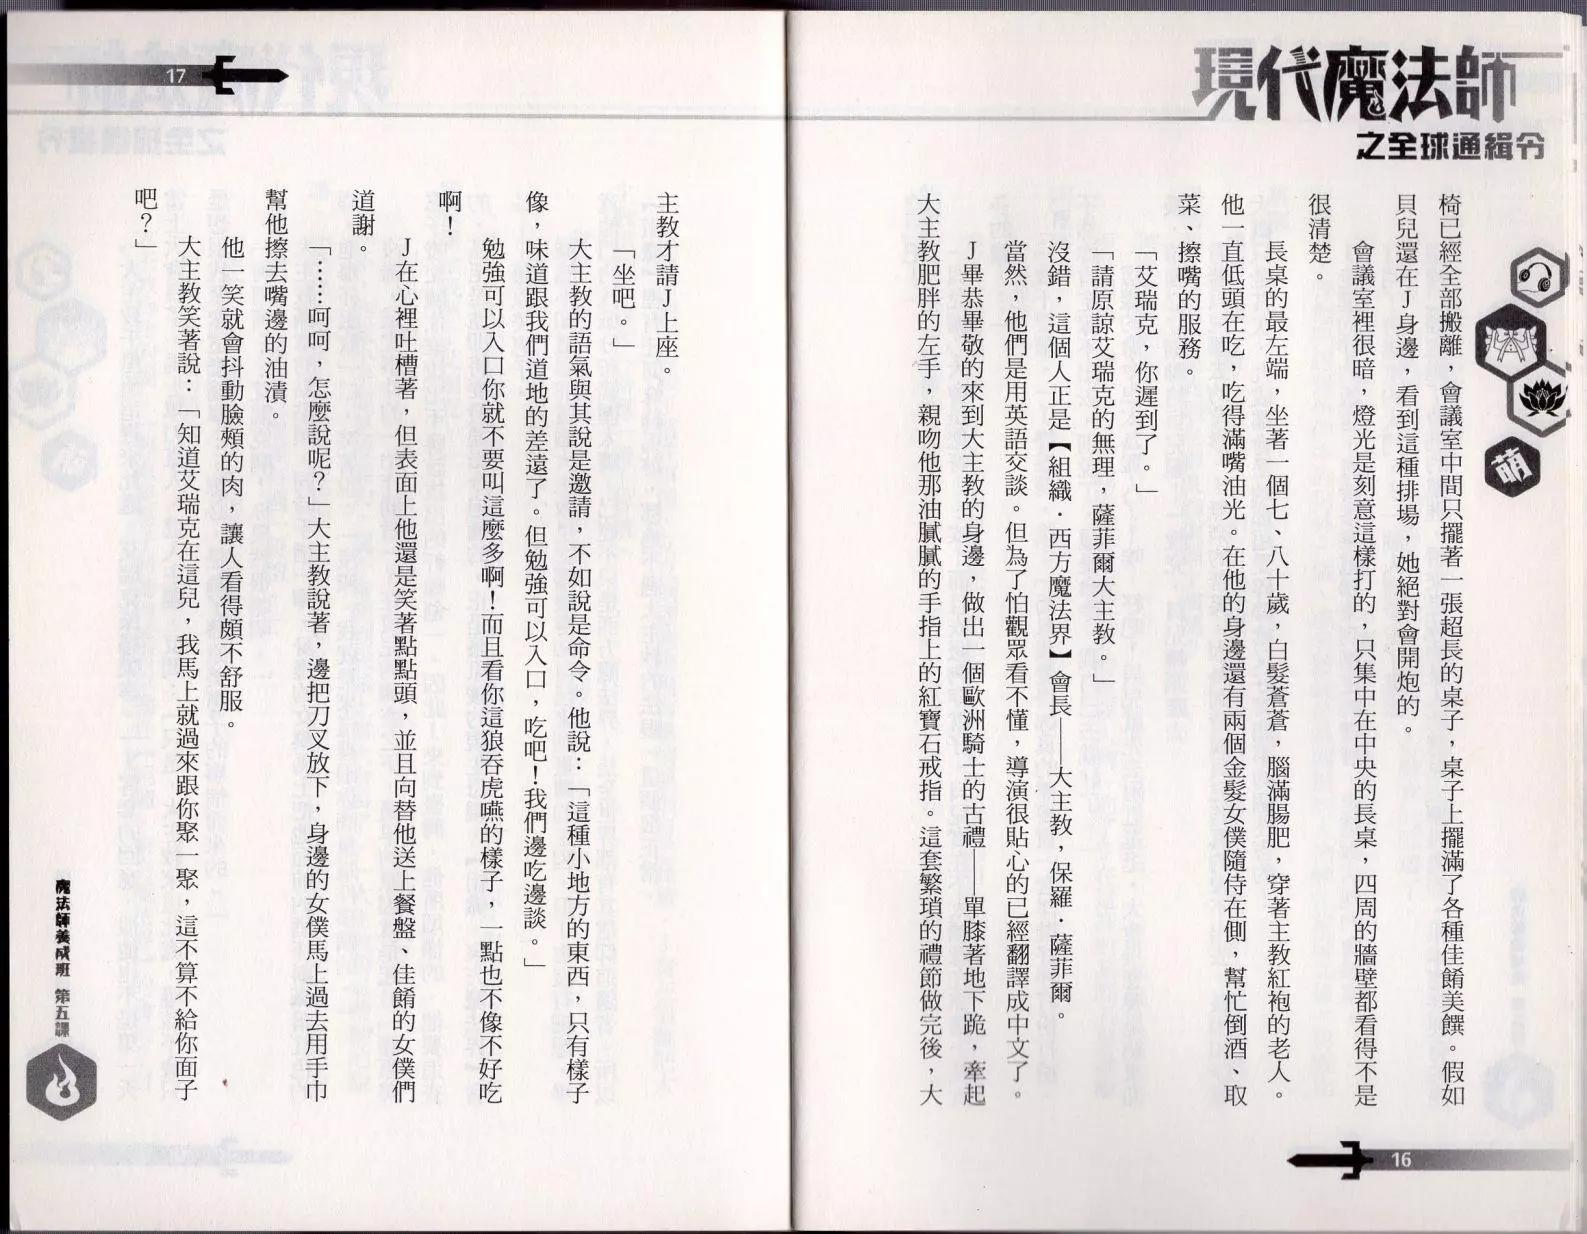 現代魔法師
之全球通緝令
萌
椅已經全部搬離，會議室中間只擺著一張超長的桌子，桌子上擺滿了各種佳餚美饌。假如
貝兒還在J身邊，看到這種排場，她絕對會開炮的。
會議室裡很暗，燈光是刻意這樣打的，只集中在中央的長桌，四周的牆壁都看得不是
很清楚。
長桌的最左端，坐著一個七、八十歲，白髮蒼蒼，腦滿腸肥，穿著主教紅袍的老人。
他一直低頭在吃，吃得滿嘴油光。在他的身邊還有兩個金髮女僕隨侍在側，幫忙倒酒、取
菜、擦嘴的服務。
「艾瑞克，你遲到了。」
「請原諒艾瑞克的無理，薩菲爾大主教。」
沒錯，這個人正是【組織．西方魔法界】會長——大主教，保羅．薩菲爾。
當然，他們是用英語交談。但為了怕觀眾看不懂，導演很貼心的已經翻譯成中文了。
J畢恭畢敬的來到大主教的身邊，做出一個歐洲騎士的古禮——單膝著地下跪，牽起
大主教肥胖的左手，親吻他那油膩膩的手指上的紅寶石戒指。這套繁瑣的禮節做完後，大
16
17
主教才請J上座。
「坐吧。」
大主教的語氣與其說是邀請，不如說是命令。他說：「這種小地方的東西，只有樣子
像，味道跟我們道地的差遠了。但勉強可以入口，吃吧！我們邊吃邊談。」
勉強可以入口你就不要叫這麼多啊！而且看你這狼吞虎嚥的樣子，一點也不像不好吃
啊！
J在心裡吐槽著，但表面上他還是笑著點點頭，並且向替他送上餐盤、佳餚的女僕們
道謝。
「……呵呵，怎麼說呢？」大主教說著，邊把刀叉放下，身邊的女僕馬上過去用手巾
幫他擦去嘴邊的油漬。
他一笑就會抖動臉頰的肉，讓人看得頗不舒服。
大主教笑著說：「知道艾瑞克在這兒，我馬上就過來跟你聚一聚，這不算不給你面子
吧？」
魔法師養成班 第五課